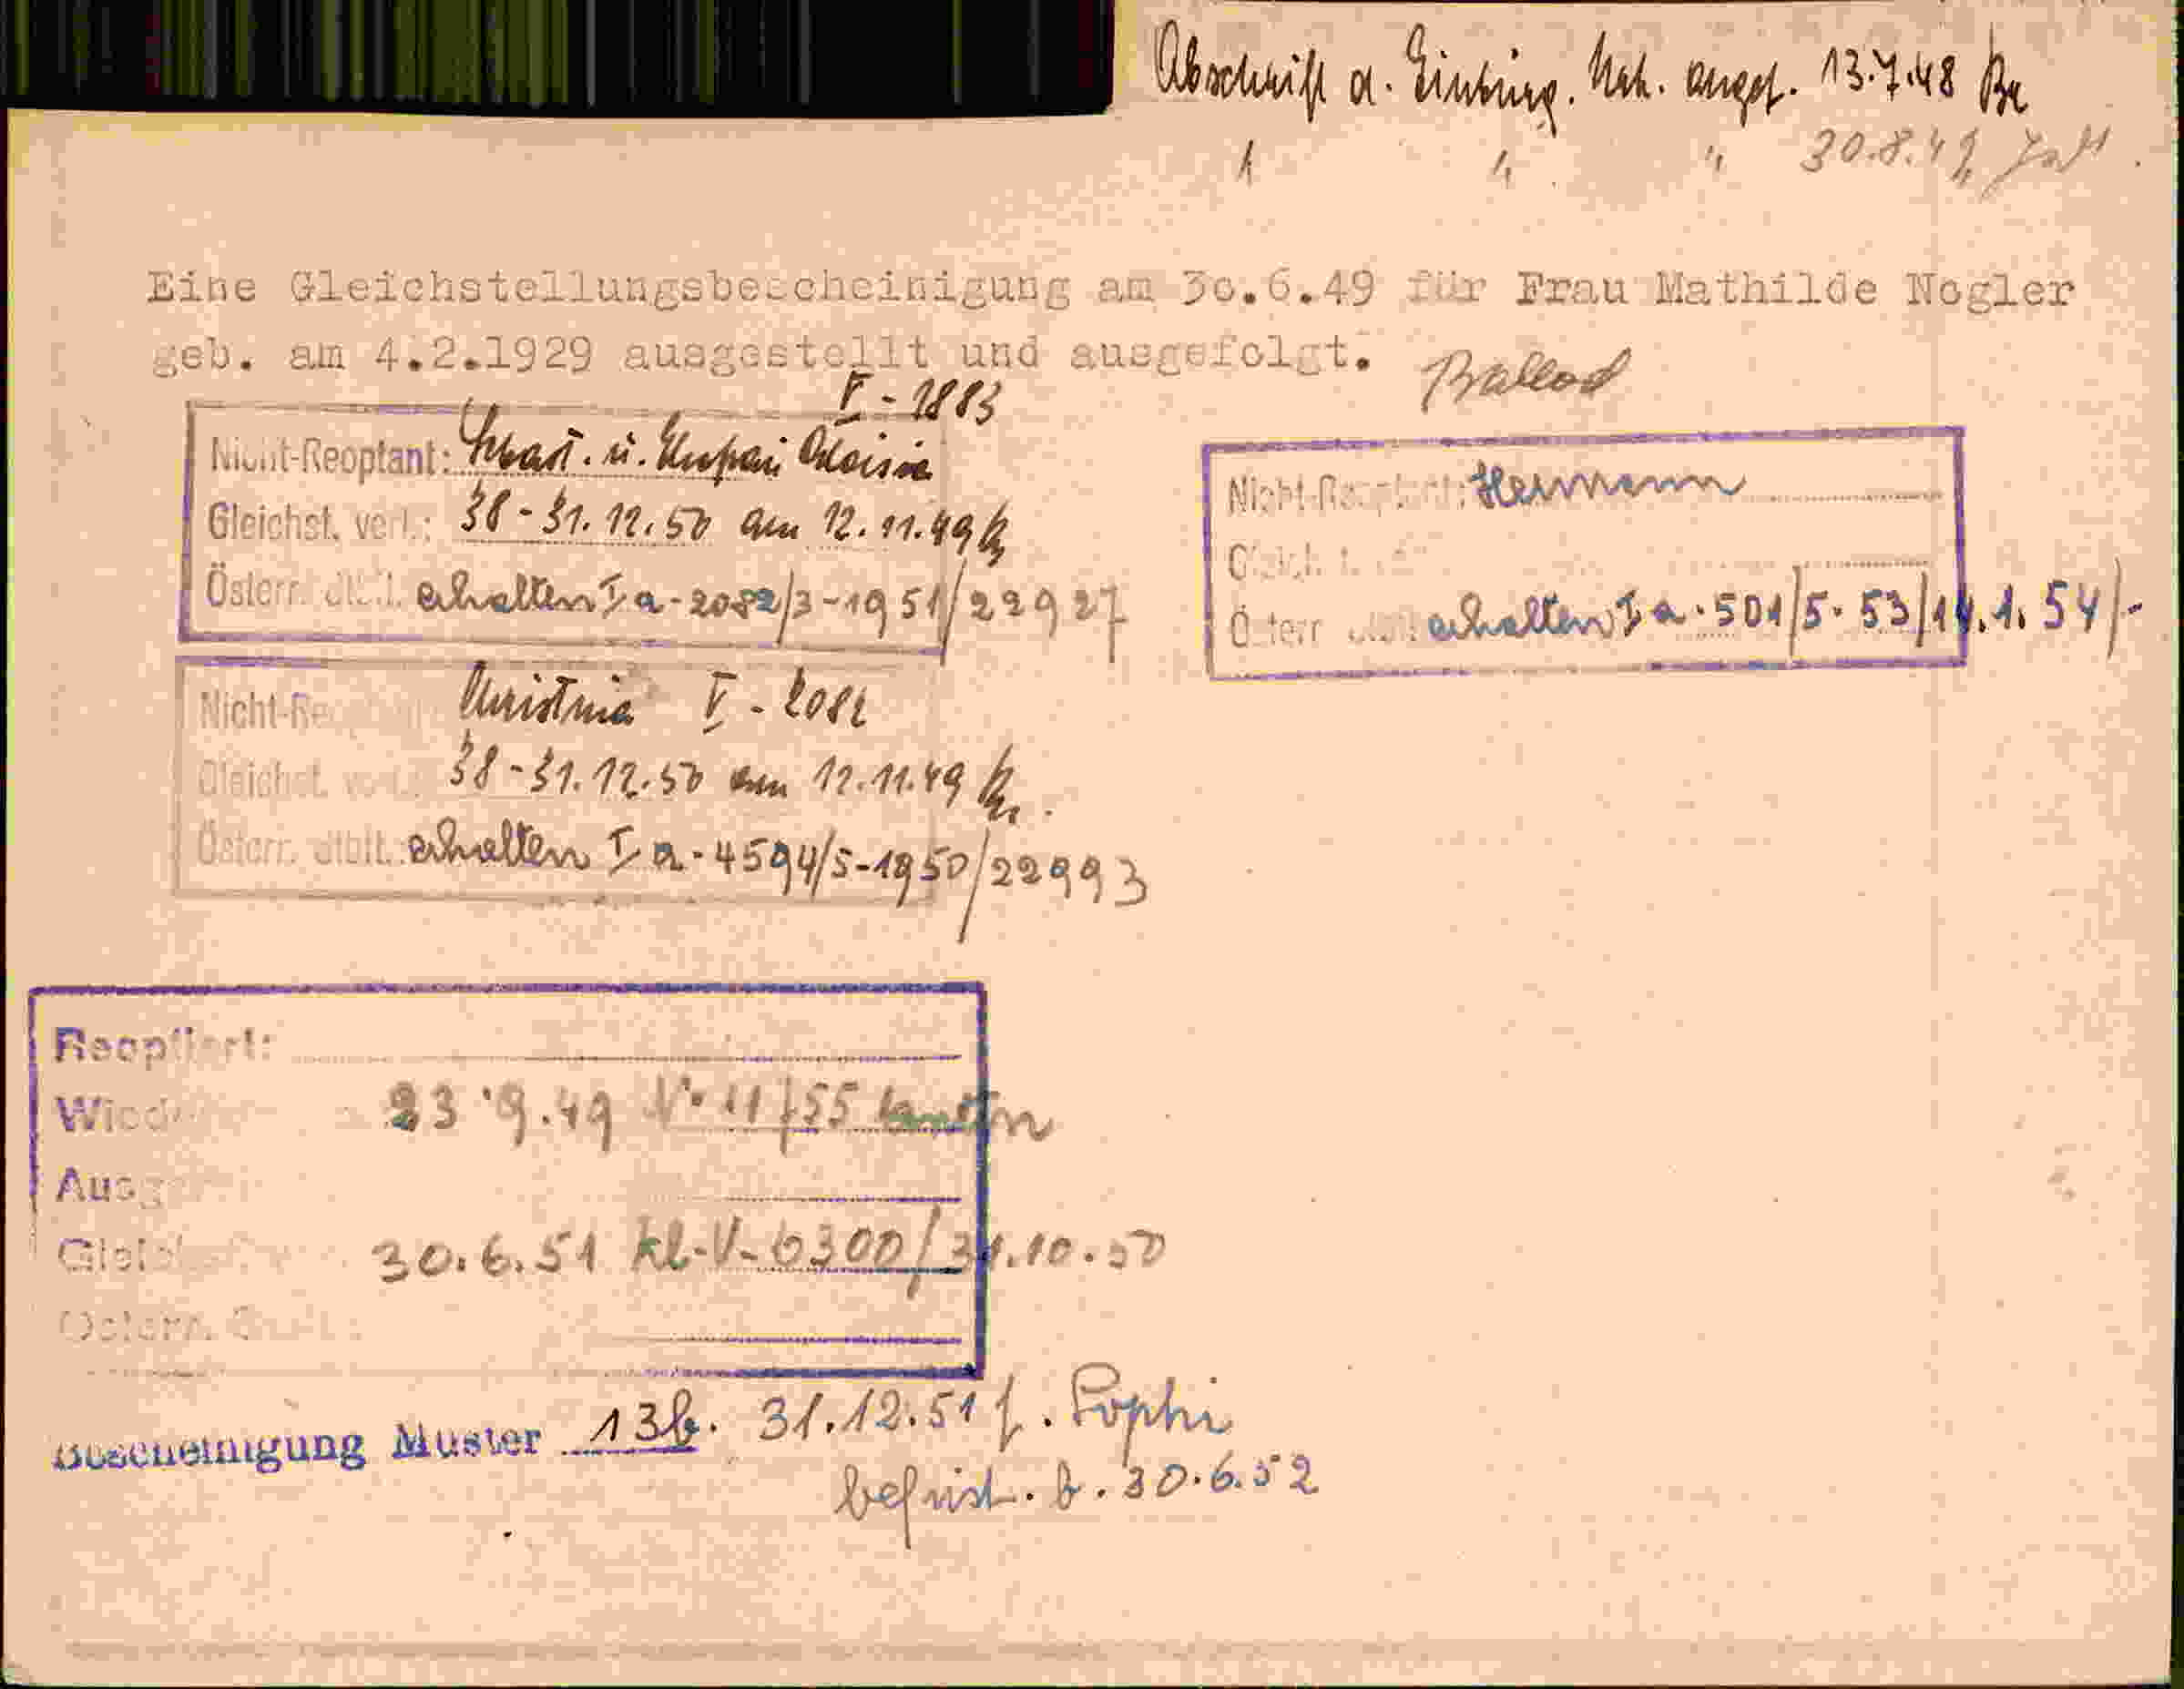 Abschrift d. Einbürg. Urk. angef. 13.7.48 Br
" " " 30.8.49
Eine Gleichstellungsbescheinigung am 30.6.49 für Frau Mathilde Nogler
geb. am 4.2.1929 ausgestellt und ausgefolgt. Ballod
V - 1883
Nicht-Reoptant: u. Aloisia
Gleichst. verl.: 38 - 31.12.50 am 12.11.49
Österr. erhalten I a - 2082/3-1951/22927
Nicht-Reoptant: Hermann
Gleichst.
Österr. erhalten I a - 501/5-53/14.1.54/-
Nicht-Re Christina V - 2082
Gleichst. verl.: 38 - 31.12.50 am 12.11.49
Österr. stblt. erhalten I a - 4594/5-1950/22993
Reoptiert:
Wied 23.9.49 V-11/55
Ausg
Gleich 30.6.51 Kl-V-6300/31.10.50
Österr.
Bescheinigung Muster 13b. 31.12.51 f. Sophi
befrist. b. 30.6.52